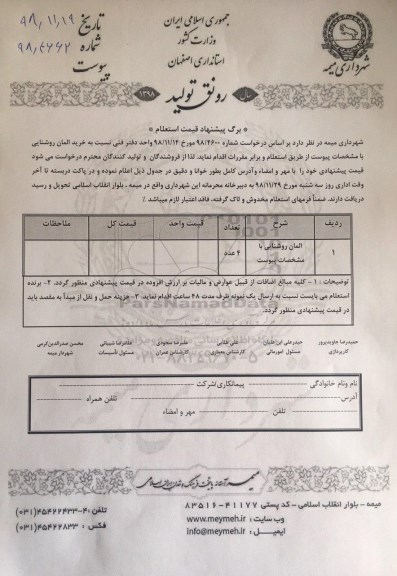 جمهوری اسلامی ایران
وزارت کشور
استانداری اصفهان
شهرداری میمه
تاریخ ۹۸,۱۱,۱۹
شماره ۹۸,۴۶۶۲
پیوست
سال رونق تولید ۱۳۹۸
* برگ پیشنهاد قیمت استعلام *
شهرداری میمه در نظر دارد بر اساس درخواست شماره ۹۸/۴۶۰۰ مورخ ۹۸/۱۱/۱۴ واحد دفتر فنی نسبت به خرید المان روشنایی
با مشخصات پیوست از طریق استعلام و برابر مقررات اقدام نماید. لذا از فروشندگان و تولید کنندگان محترم درخواست می شود
قیمت پیشنهادی خود را با مهر و امضاء و آدرس کامل بطور خوانا و دقیق در جدول ذیل اعلام نموده و در پاکت دربسته تا آخر
وقت اداری روز سه شنبه مورخ ۹۸/۱۱/۲۹ به دبیرخانه محرمانه این شهرداری واقع در میمه ـ بلوار انقلاب اسلامی تحویل و رسید
دریافت دارند. ضمناً فرمهای استعلام مخدوش و لاک گرفته، فاقد اعتبار لازم میباشد.
ردیف شرح تعداد قیمت واحد قیمت کل ملاحظات
۱ المان روشنایی با مشخصات پیوست ۴ عدد
توضیحات : ۱ - کلیه مبالغ اضافات از قبیل عوارض و مالیات بر ارزش افزوده در قیمت پیشنهادی منظور گردد. ۲- برنده
استعلام می بایست نسبت به ارسال یک نمونه ظرف مدت ۴۸ ساعت اقدام نماید. ۳- هزینه حمل و نقل از مبدأ به مقصد باید
در قیمت پیشنهادی منظور گردد.
حمیدرضا جاویدپرور حیدرعلی علی طلایی علیرضا مسعودی غلامرضا شیبانی محسن صدرالدین کرمی
کارپردازی مسئول امورمالی کارشناس معماری کارشناس عمران مسئول تأسیسات شهردار میمه
ParsNamadData
نام ونام خانوادگی پیمانکاری/شرکت
آدرس تلفن همراه
تلفن مهر و امضاء
میمه – بلوار انقلاب اسلامی – کد پستی ۴۱۱۷۷-۸۳۵۱۶
وب سایت : www.meymeh.ir
ایمیل : info@meymeh.ir
تلفن: ۴-۴۵۴۲۲۴۳۳(۰۳۱)
فکس : ۴۵۴۲۲۸۳۳(۰۳۱)